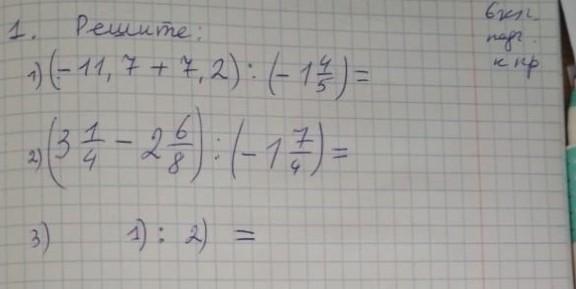 1. Решите:
6 кл.
подг.
к кр
1) (-11,7 + 7,2) : (-1 4/5) =
2) (3 1/4 - 2 6/8) : (-1 7/4) =
3) 1) : 2) =